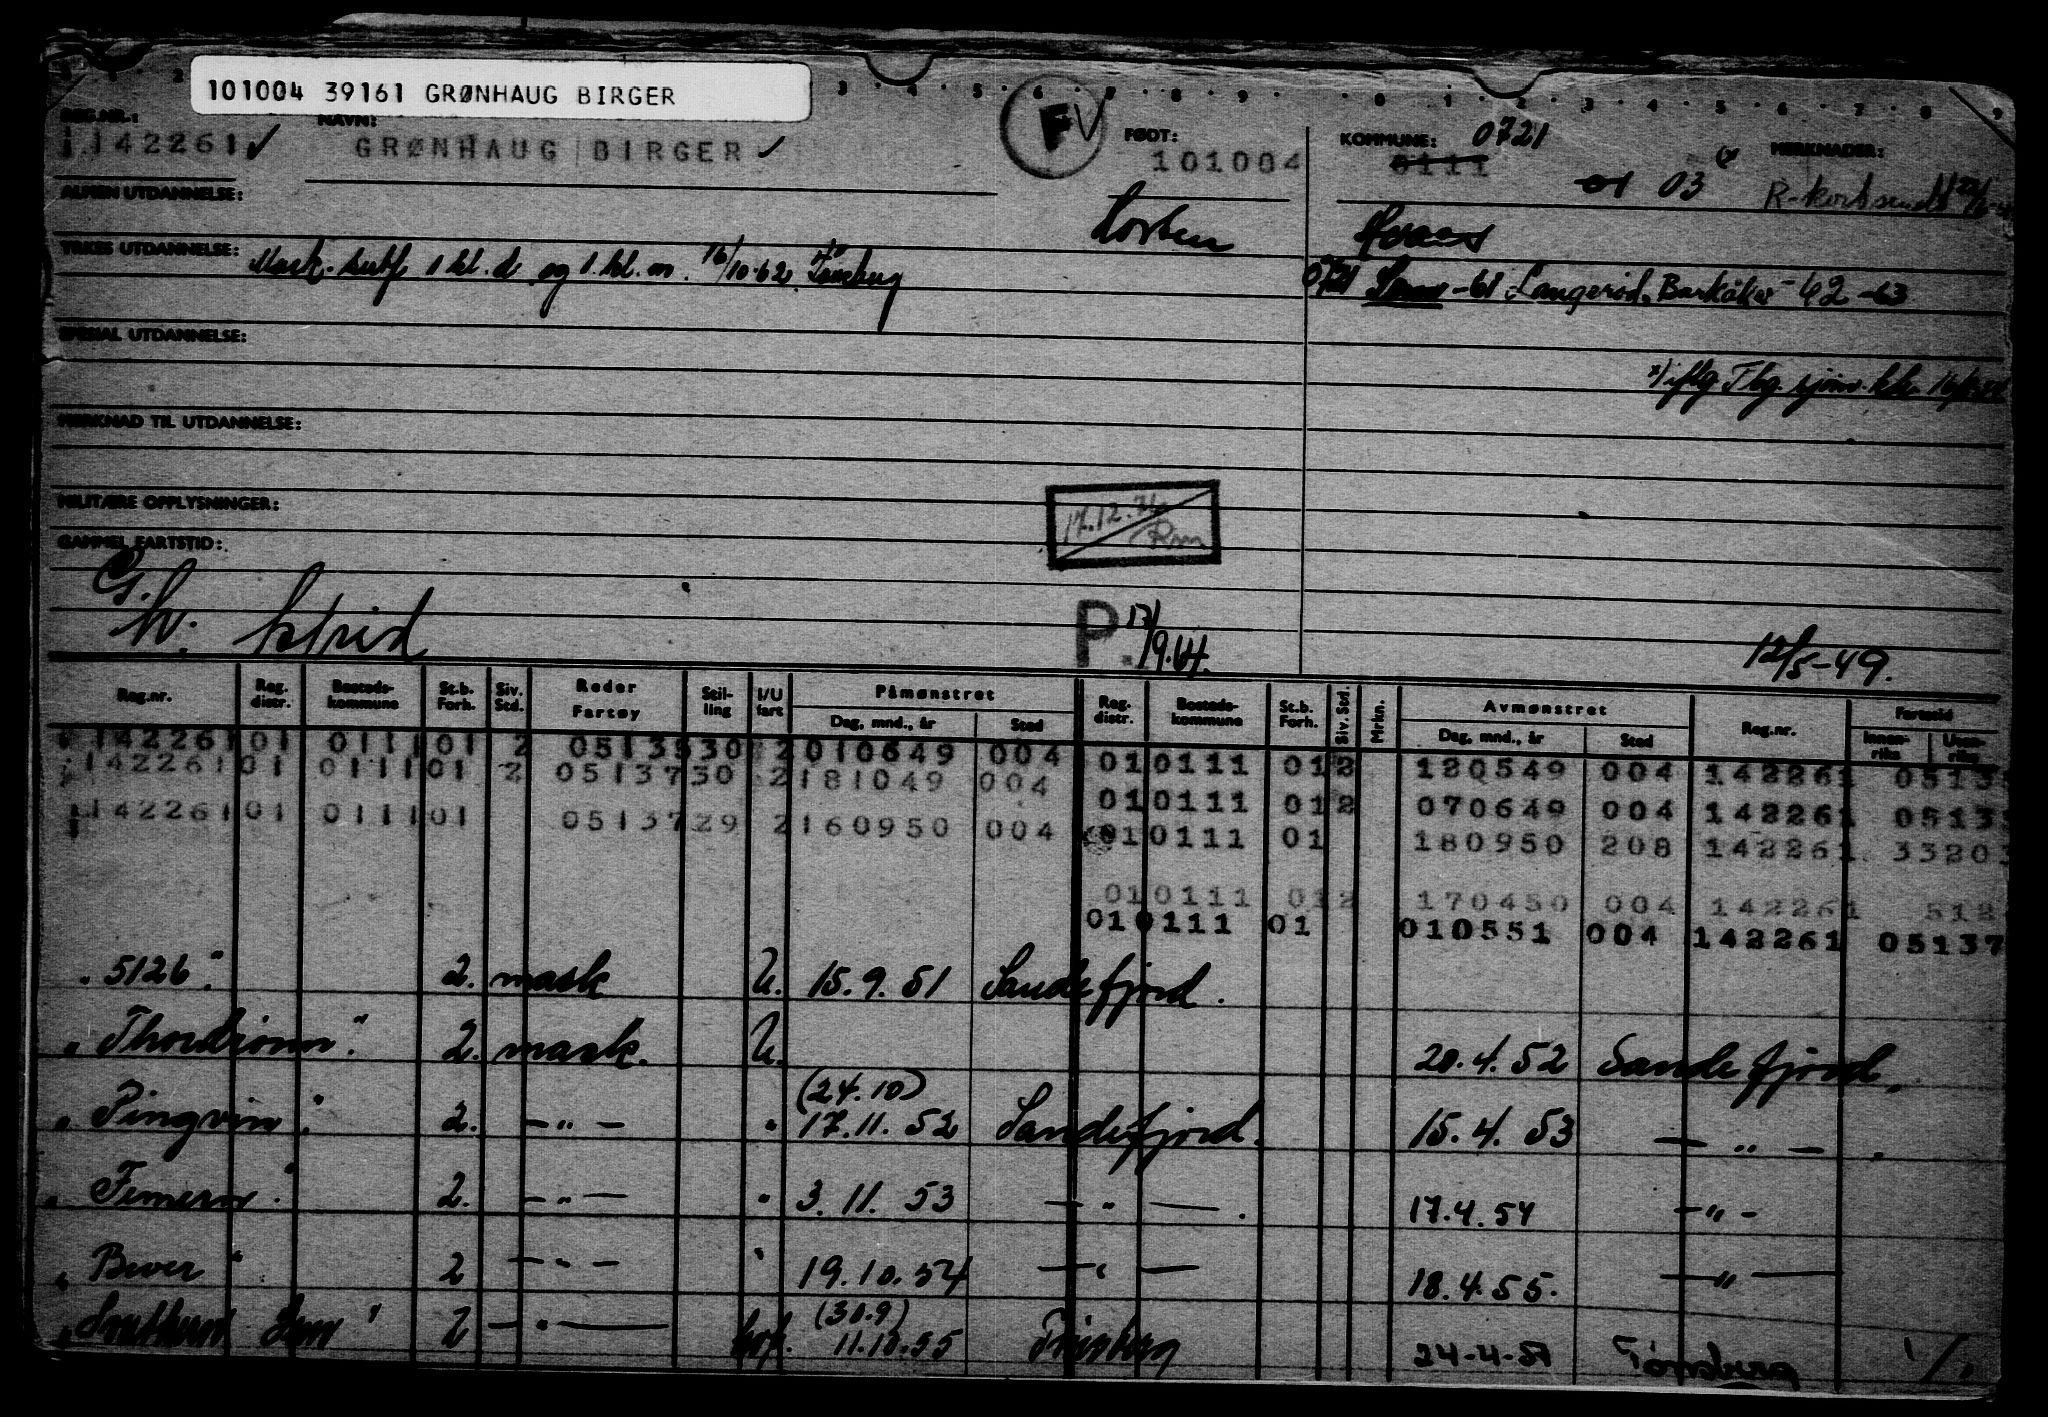 101004 39161 GRØNHAUG BIRGER
REG.NR.: NAVN: FØDT: KOMMUNE: 0721 MERKNADER:
142261 GRØNHAUG BIRGER F 101004 0111
01 03
ALMEN UTDANNELSE:
YRKES UTDANNELSE: Mask. subf. 1 kl. d. og 1. kl. m. 16/10-62 Tønsberg
0721 Sem -61 Langerød, Barkåker -62 -63
SPESIAL UTDANNELSE:
MERKNAD TIL UTDANNELSE:
MILITÆRE OPPLYSNINGER:
17.12.
GAMMEL FARTSTID:
G.
P. 17/9.64.
12/5-49.
Reg.nr. Reg. distr. Bosteds-kommune St.b. Forh. Siv. Std. Reder Fartøy Stil-ling I/U fart Påmønstret Dag, mnd., år Sted Reg. distr. Bosteds-kommune St.b. Forh. Siv. Std. Mrkn. Avmønstret Dag, mnd., år Sted Reg.nr. Fartstid Innen-riks Uten-riks
142261 01 0111 01 2 05135 30 2 010649 004 01 0111 01 2 120549 004 142261 0513
142261 01 0111 01 2 05137 30 2 181049 004 01 0111 01 2 070649 004 142261 0513
142261 01 0111 01 05137 29 2 160950 004 01 0111 01 180950 208 142261 33203
01 0111 01 2 170450 004 142261 512
01 0111 01 010551 004 142261 05137
"5126". 2. mask U. 15.9.51 Sandefjord.
2. mask. U. 20.4.52 Sandefjord.
"Pingvin". 2. — " — " (24.10) 17.11.52 Sandefjord. 15.4.53 — " — .
"Femern". 2. — " — " 3.11.53 — " — . 17.4.54 — " —
"Bever" 2 — " — " 19.10.54 — " — 18.4.55. — " —
"Southern 2 — " — (30.9) 11.10.55 Tønsberg 24-4-57 Tønsberg